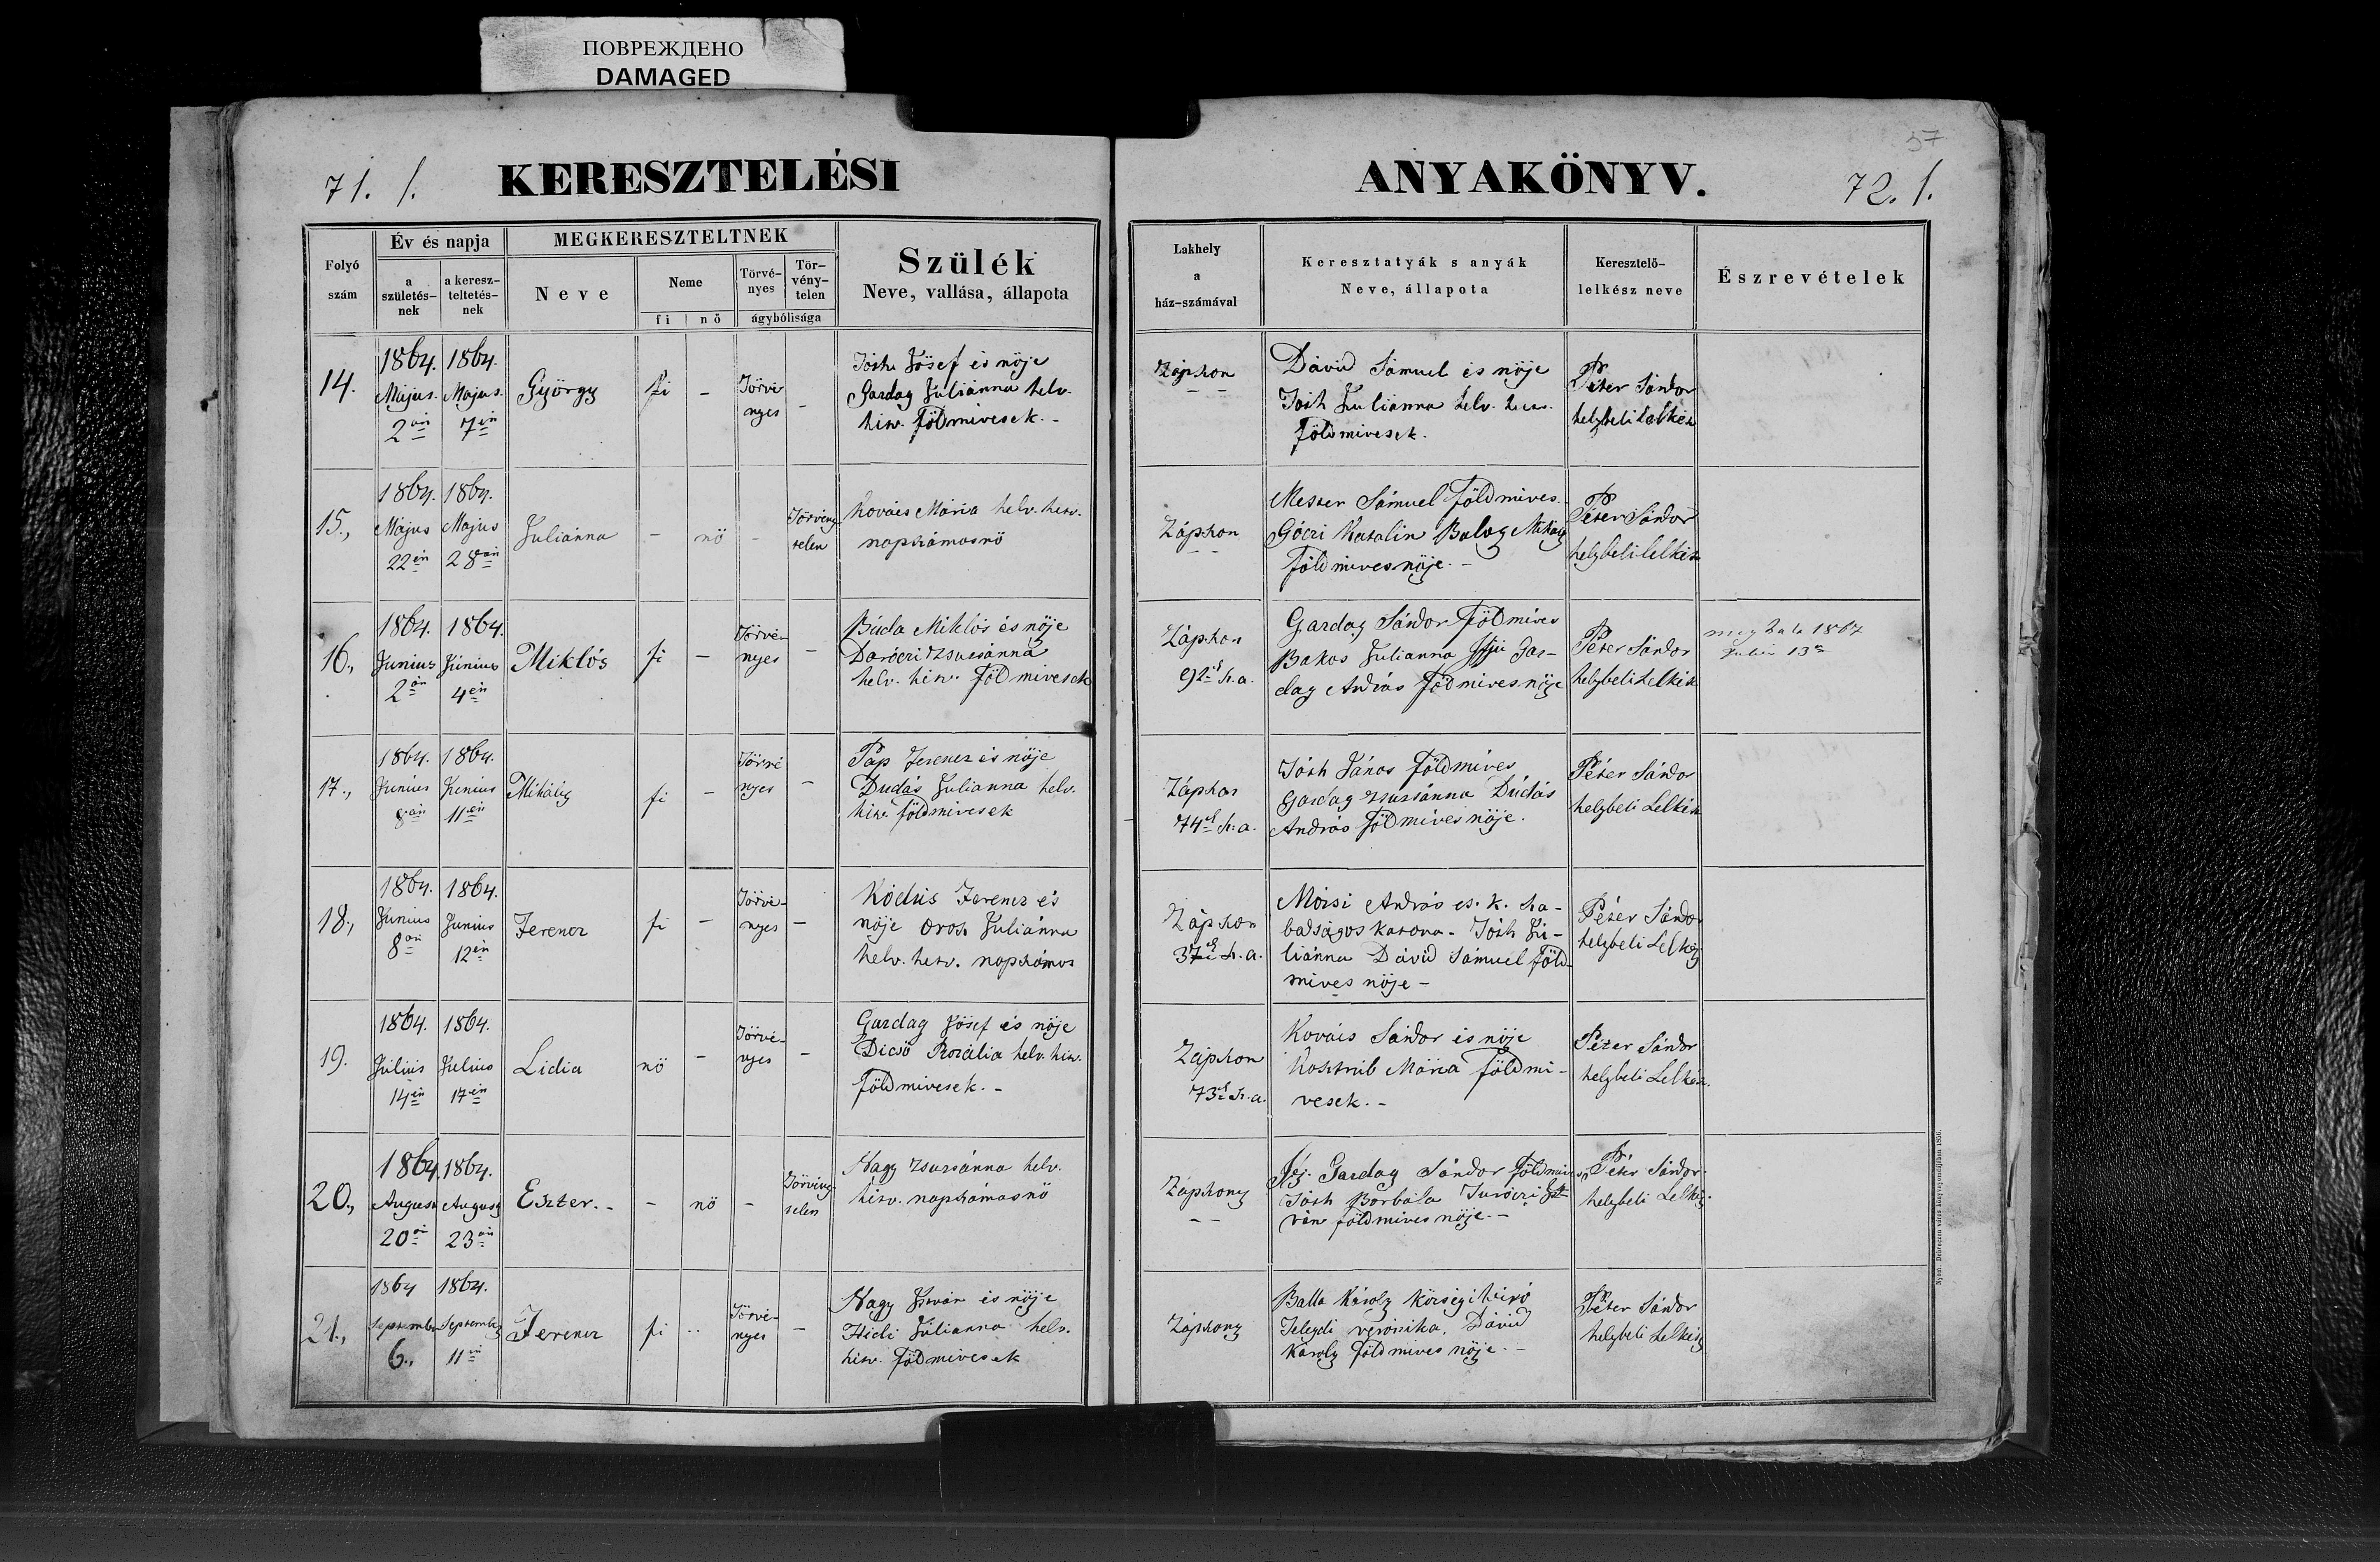 ПОВРЕЖДЕНО
DAMAGED
57
71. l.
KERESZTELÉSI
ANYAKÖNYV.
72. l.
Folyó
szám
Év és napja
a
születés-
nek
a keresz-
teltetés-
nek
MEGKERESZTELTNEK
Neve
Neme
fi
nö
Törvé-
nyes
Tör-
vény-
telen
ágybólisága
Szülék
Neve, vallása, állapota
Lakhely
a
ház-számával
Keresztatyák s anyák
Neve, állapota
Keresztelő-
lelkész neve
Észrevételek
14.
1864.
Május
2án
1864.
Május
7én
György
fi
-
Törvé
nyes
-
Tóth Jósef és nöje
Gazdag Juliánna helv.
hitv. Földmivesek. -
Záphon
- -
Dávid Sámuel és nöje
Tóth Juliánna helv. hitv.
földmivesek.
Péter Sándor
helybeli lelkész
15.,
1864.
Május
22én
1864.
Május
28án
Juliánna
-
nö
-
Törvény
telen
Kovács Mária helv. hitv.
napszámosnö
Záphon
- -
Mester Sámuel földmives.
Góczi Katalin Balog Mihály
földmivesnöje. -
Péter Sándor
helybeli lelkész
16.,
1864.
Junius
2án
1864.
Június
4én
Miklós
fi
-
Törvé-
nyes
-
Búda Miklós és nöje
Daróczi Zsuzsánna
helv. hitv. Földmivesek
Záphon
92ik h. a.
Gazdag Sándor földmives
Bakos Julianna Ifjú Gaz-
dag András földmivesnöje
Péter Sándor
helybeli lelkész
meg hala 1867
13n
17.,
1864.
Június
8án
1864.
Június
11én
Mihály
fi
-
Törvé
nyes
-
Pap Ferencz és nöje
Dudás Julianna helv.
hitv. földmivesek
Záphon
74ik h. a.
Tóth János földmives
Gazdag Zsuzsánna Dúdás
András földmives nöje.
Péter Sándor
helybeli Lelkész
18.,
1864.
Junius
8án
1864.
Junius
12én
Ferencz
fi
-
Törvé-
nyes
-
Ferencz és
nöje Orosz Juliánna
helv. hitv. napszámos
Záphon
37ik h. a.
Mórsi András cs. k. sza-
badságos katona - Tóth Ju-
liánna Dávid Sámuel föld-
mives nöje -
Péter Sándor
helybeli Lelkész
19.
1864.
Július
14én
1864.
Julius
17én
Lidia
nö
-
Törvé-
nyes
-
Gazdag Jósef és nöje
Dicsö Rozália helv. hitv.
földmivesek. -
Záphon
73ik h. a.
Kovács Sándor és nöje
Kosztrub Mária földmi-
vesek. -
Péter Sándor
helybeli Lelkész.
20.,
1864.
August
20án
1864.
August
23án
Eszter. -
-
nö
-
Törvény
telen
Nagy Zsuzsánna helv.
hitv. napszámosnö
Záphony
- -
Ifj. Gazdag Sándor földmives
Tóth Borbála Turóczi Ist-
ván földmives nöje. -
Péter Sándor
helybeli Lelkész
21.,
1864
September
6.,
1864.
September
11én
Ferencz
fi
..
Törvé-
nyes
-
Nagy István és nöje
Hidi Julianna helv.
hitv. földmivesek
Záphony
Balla Károly községi biró
Telegdi Veronika, Dávid
Károly földmives nöje. -
Péter Sándor
helybeli Lelkész
Nyom. Debreczen város könyvnyomdájában 1856.